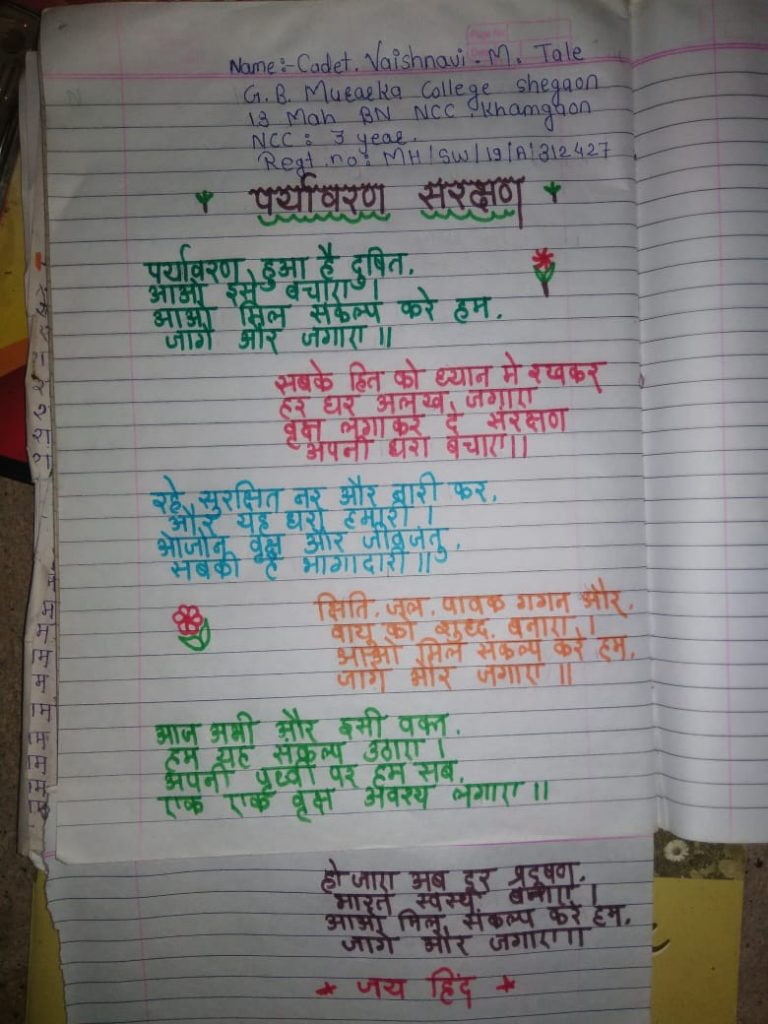 Name:- Cadet. Vaishnavi. M. Tale
G. B. Murarka College Shegaon
13 Mah BN NCC. Khamgaon
NCC: 3 year.
Regt. no: MH/SW/19/A/312427
पर्यावरण सरक्षण
पर्यावरण हुआ है दुषित,
आओ इसे बचाए ।
आओ मिल संकल्प करे हम,
जागे और जगाए ॥
सबके हित को ध्यान मे रखकर
हर घर अलख जगाए
वृक्ष लगाकर दे संरक्षण
अपनी धरा बचाए।।
रहे सुरक्षित नर और नारी कर,
और यह धरा हमारी ।
वृक्ष और जीवजंतु,
सबकी है भागीदारी ॥
क्षिति, जल, पावक गगन और,
वायु को शुध्द बनाए ।
आओ मिल संकल्प करे हम,
जागे और जगाए ॥
आज अभी और इसी वक्त,
हम यह संकल्प उठाए ।
अपनी पृथ्वी पर हम सब,
एक एक वृक्ष अवश्य लगाए ॥
हो जाए अब दूर प्रदूषण,
भारत स्वस्थ बनाए ।
आओ मिल संकल्प करे हम,
जागे और जगाए।।
जय हिंद